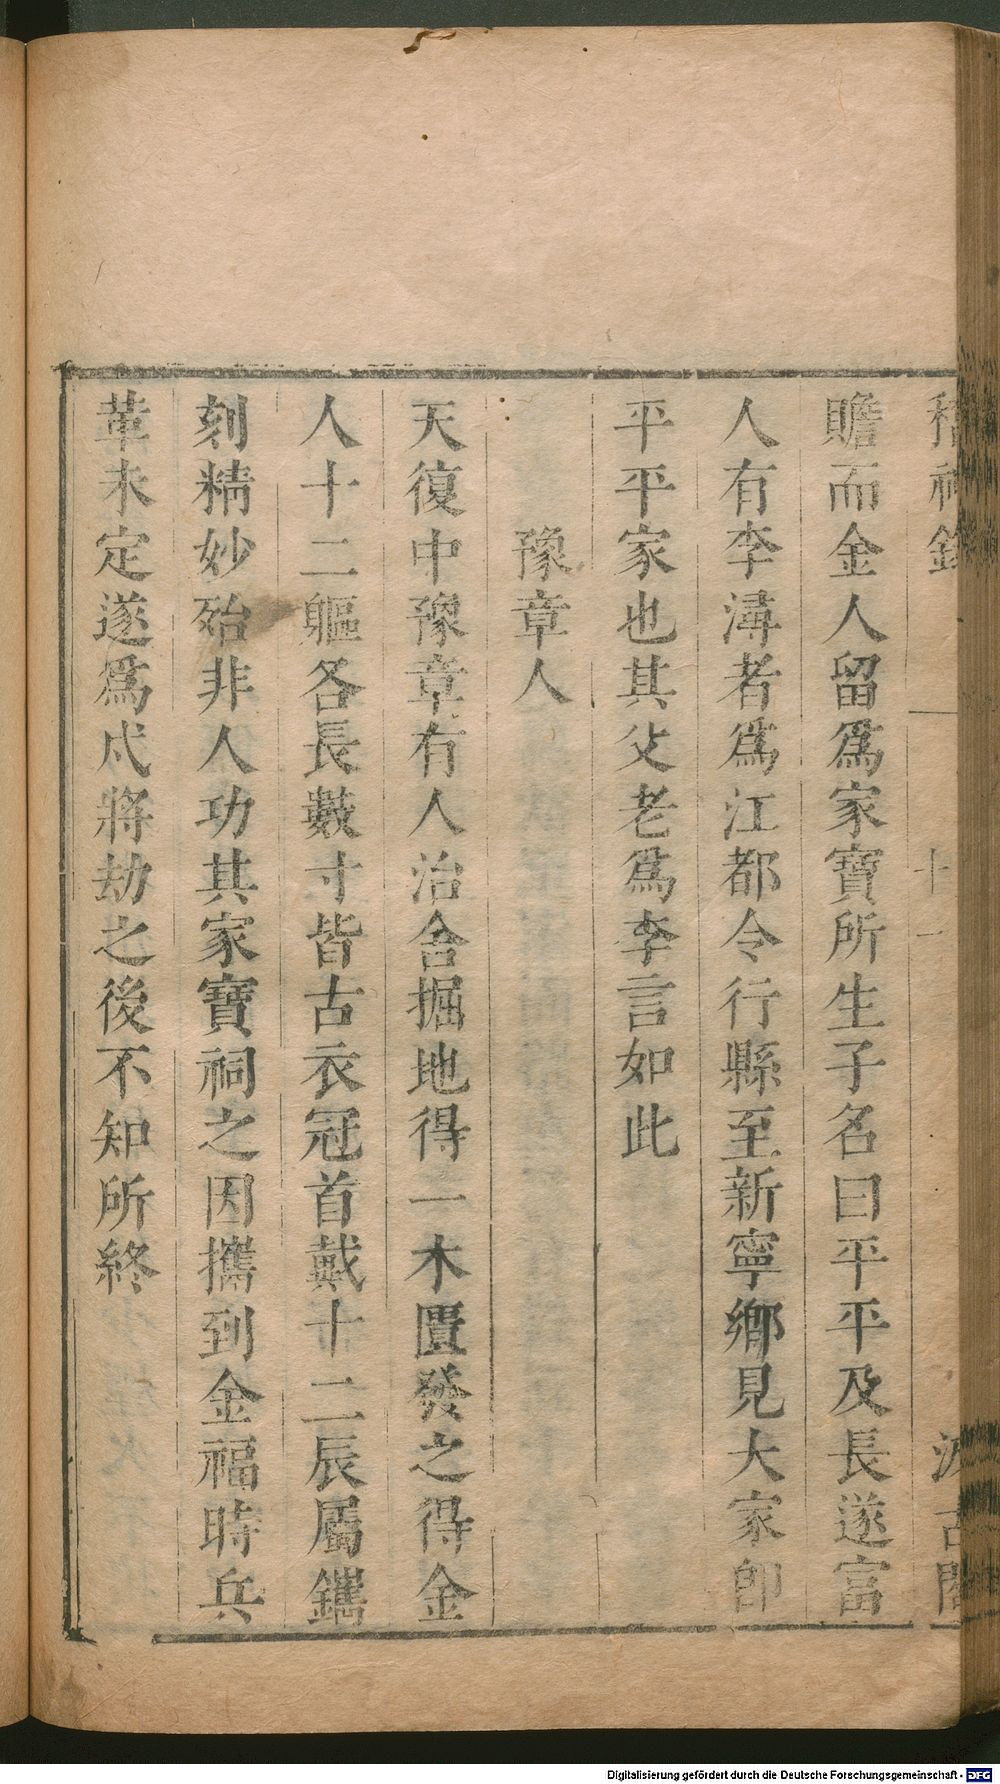 稽神錄 十一 汲古閣
贍而金人留爲家寶所生子名曰平平及長遂富
人有李潯者爲江都令行縣至新寧鄉見大家卽
平平家也其父老爲李言如此
豫章人
天復中豫章有人治舍掘地得一木匱發之得金
人十二軀各長數寸皆古衣冠首戴十二辰屬鐫
刻精妙殆非人功其家寶祠之因攜到金福時兵
革未定遂爲戍將劫之後不知所終
Digitalisierung gefördert durch die Deutsche Forschungsgemeinschaft - DFG